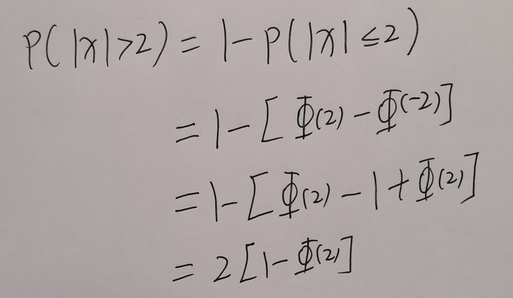 P(|x|>2) = 1-P(|x|≤2)
= 1-[Φ(2)-Φ(-2)]
= 1-[Φ(2)-1+Φ(2)]
= 2[1-Φ(2)]